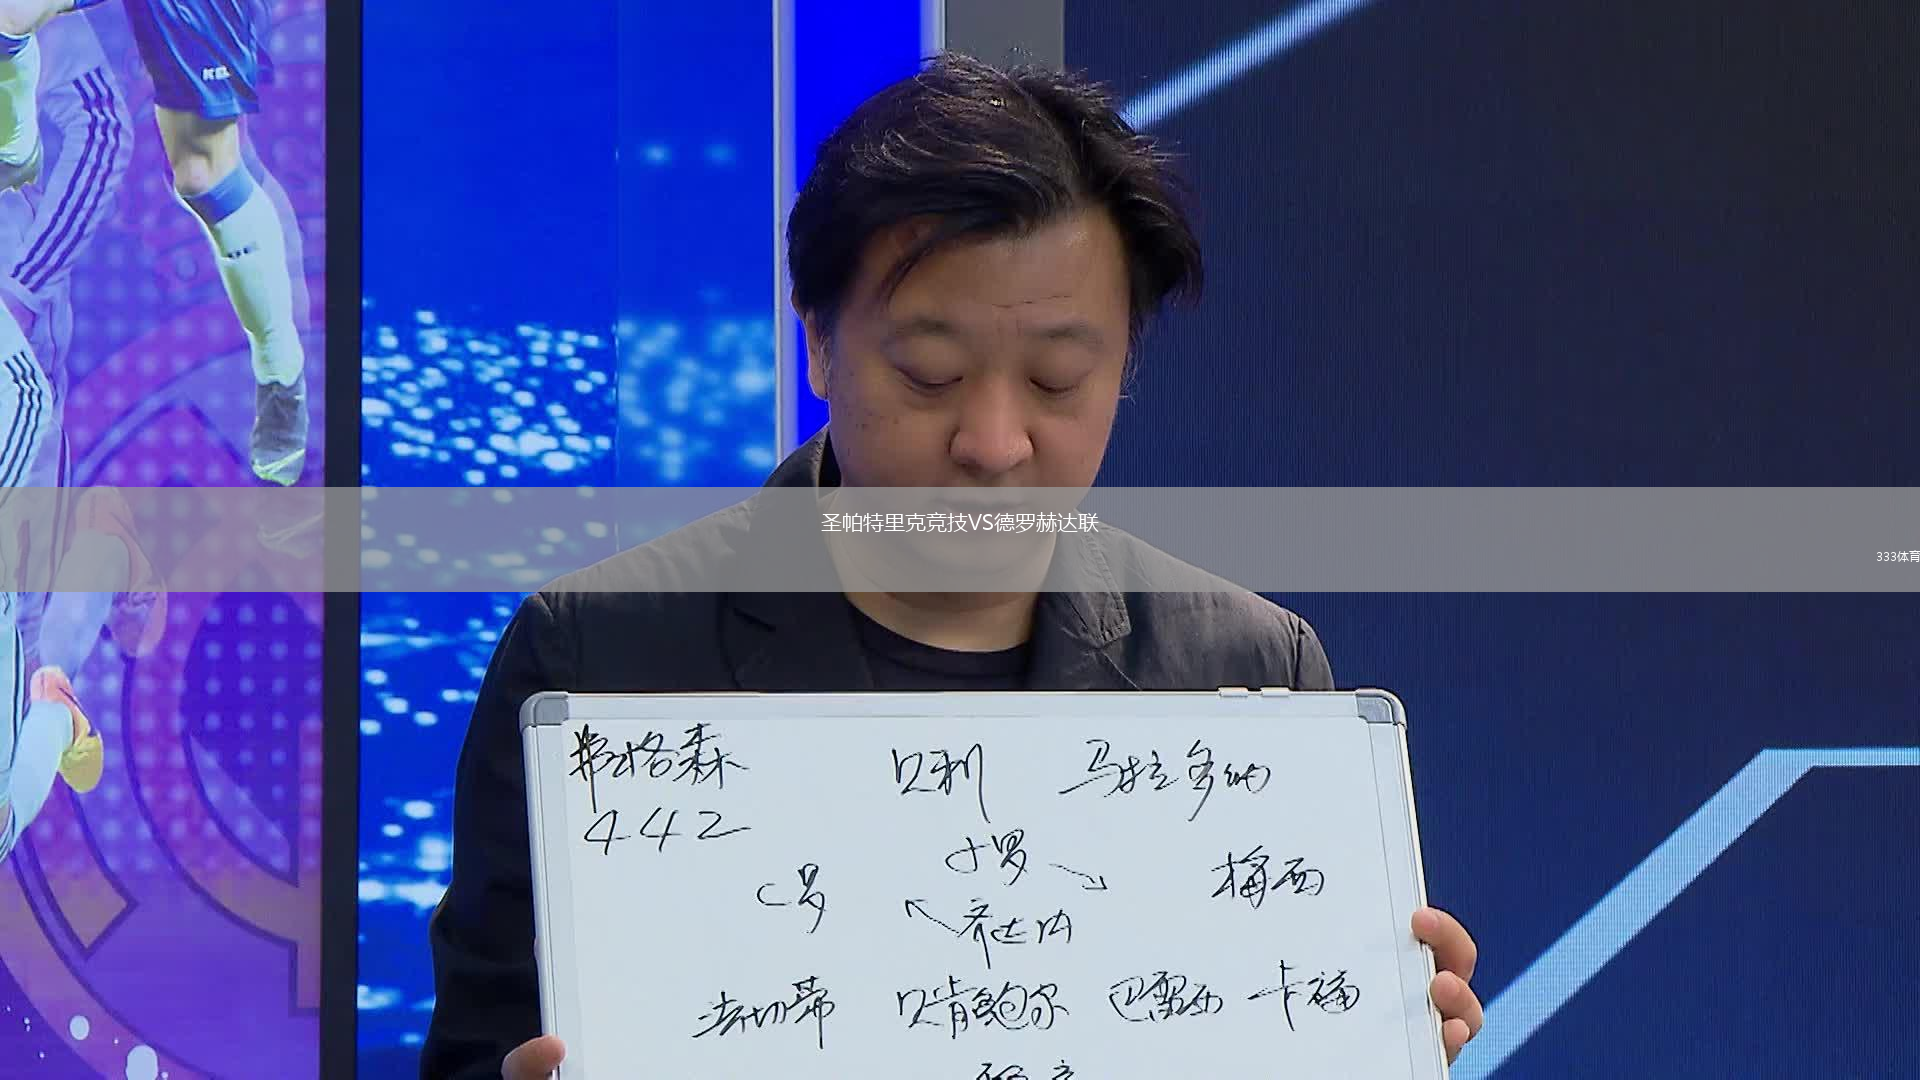 圣帕特里克竞技VS德罗赫达联
333体育
弗格森 贝利 马拉多纳
442
C罗 小罗 梅西
齐达内
法切蒂 贝肯鲍尔 巴雷西 卡福